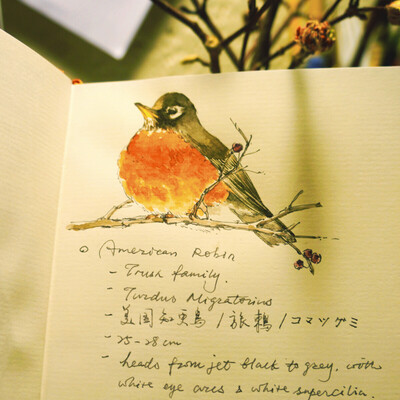 American Robin
- Trush family.
- Turdus Migratorius
- 美国知更鸟 / 旅鶇 / コマツグミ
- 25-28 cm
- heads from jet black to grey, with
white eye arcs & white supercilia.